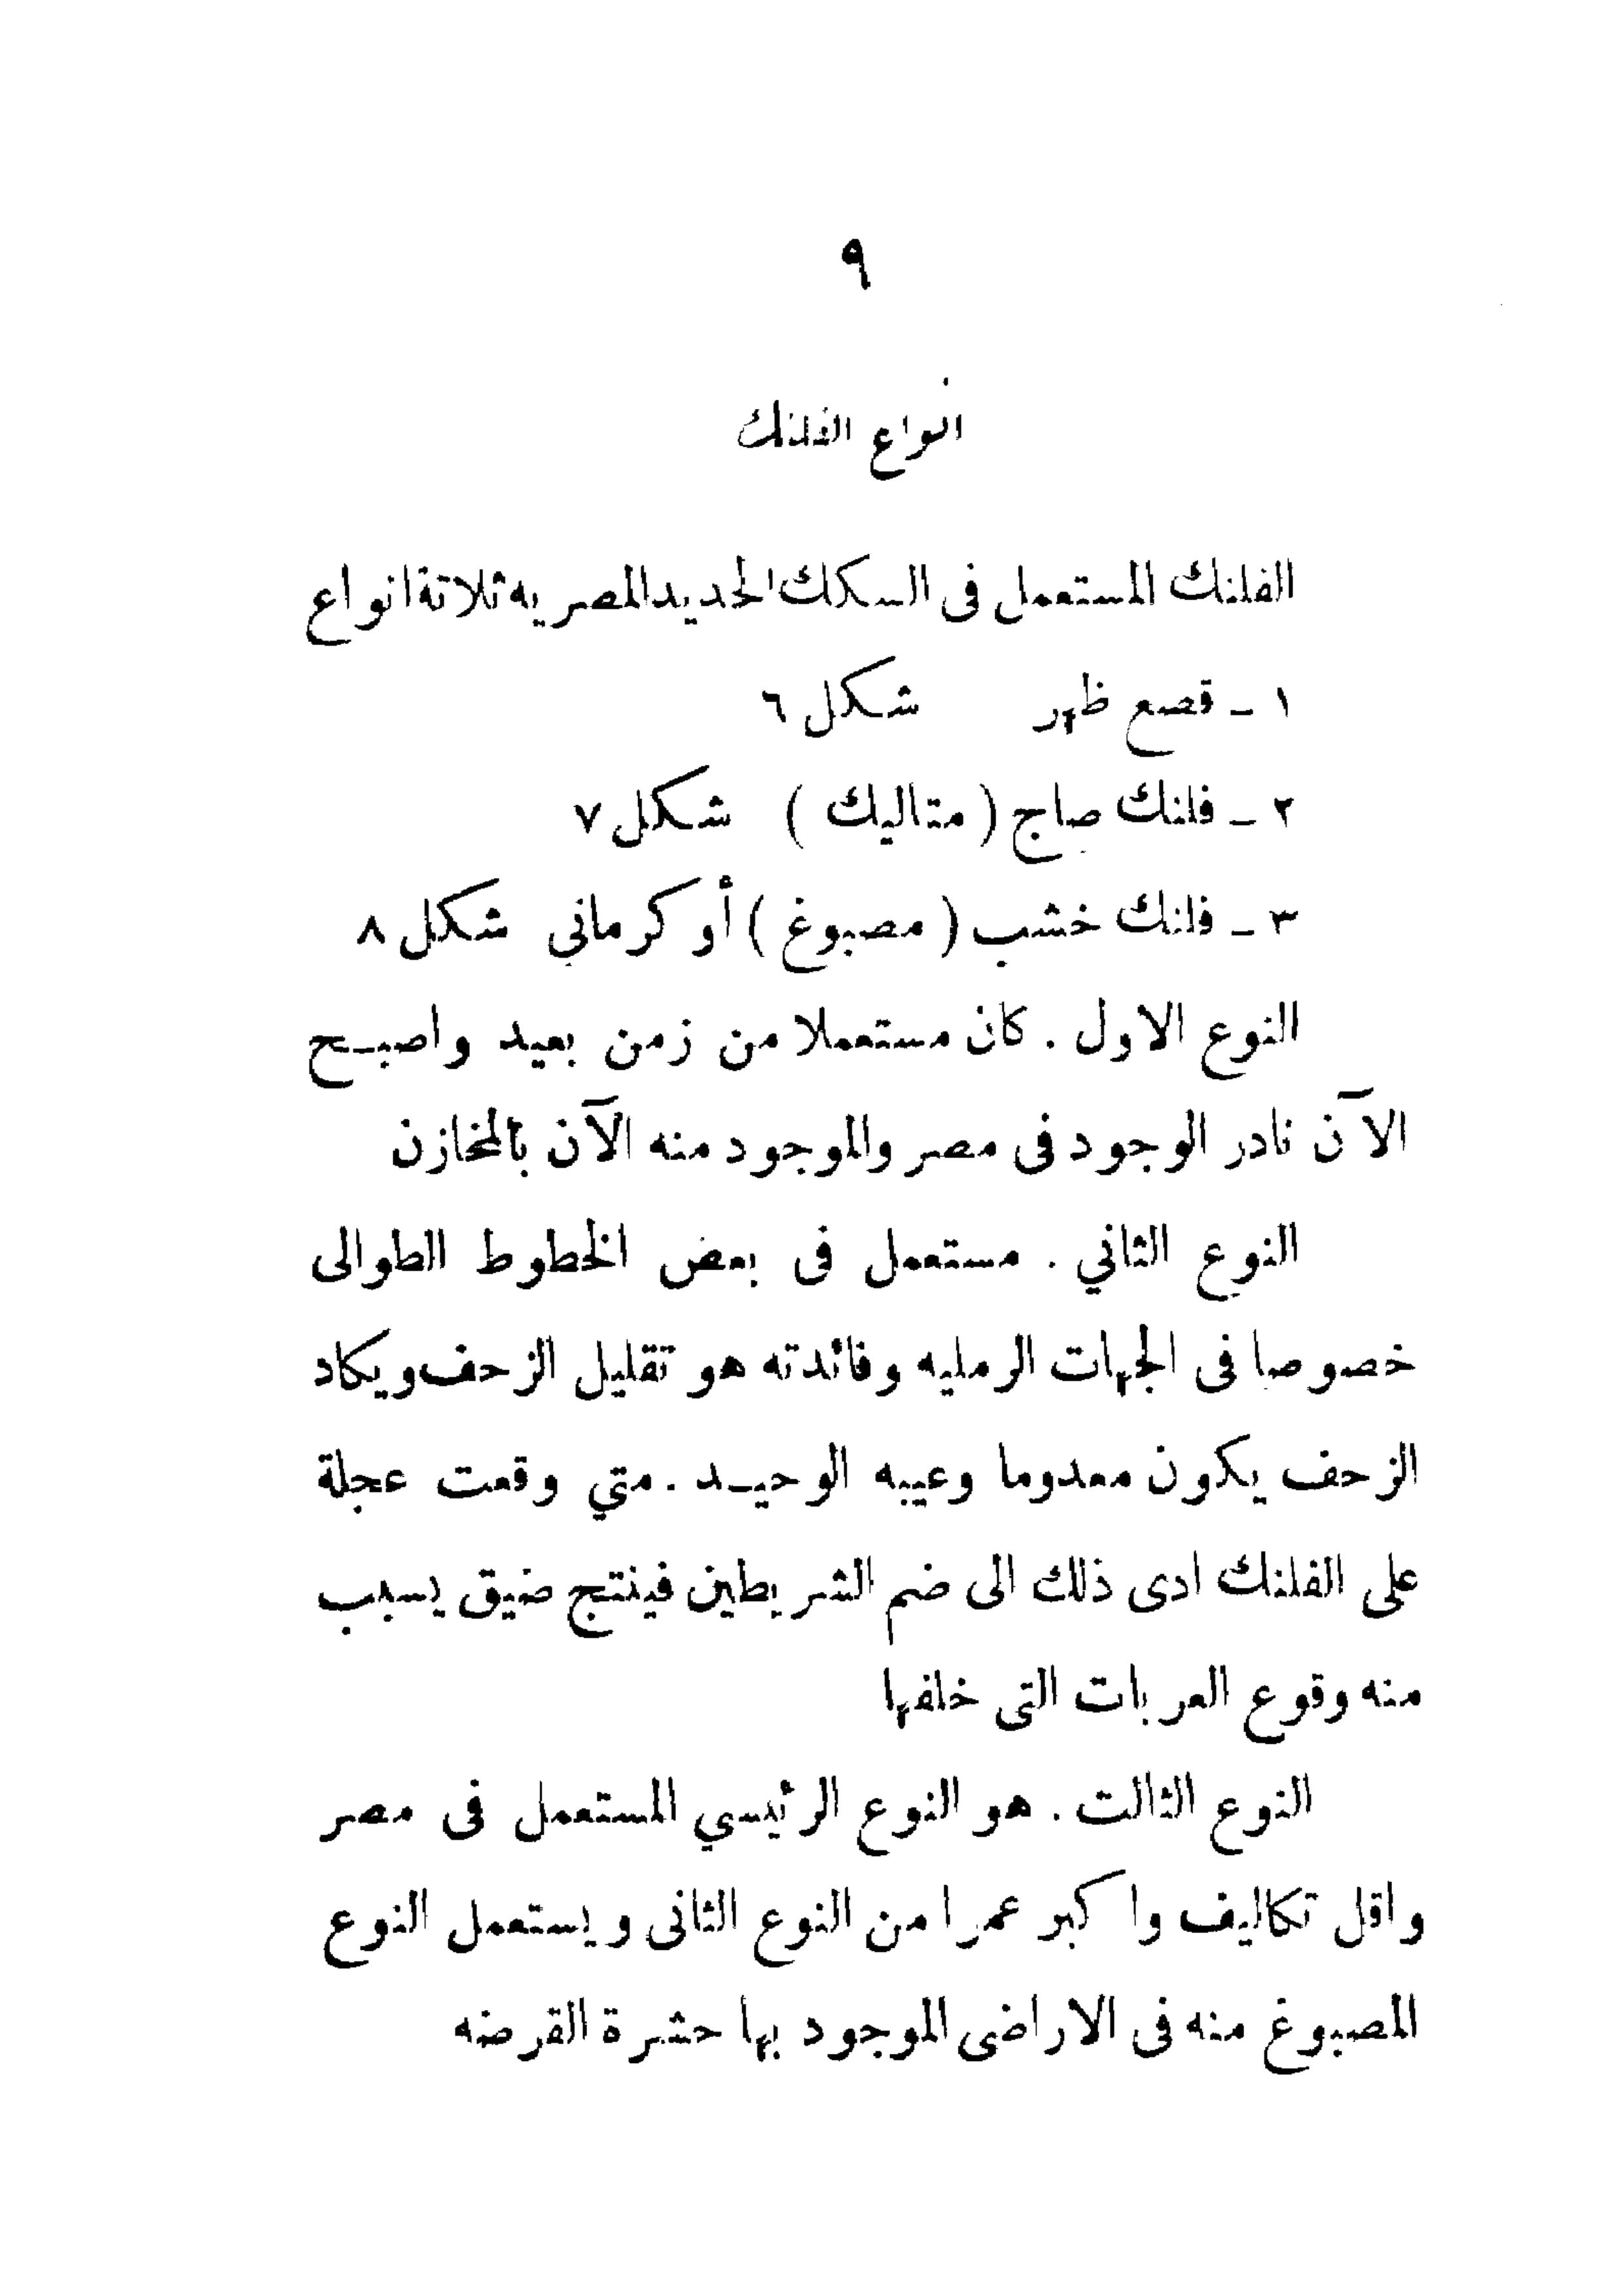 ٩
انواع الفلنك
الفلنك المستعمل فى السكك الحديد المصريه ثلاتة انواع
١ ـ قصع ظهر شكل ٦
٢ ـ فلنك صاج ( متاليك ) شكل ٧
٣ ـ فلنك خشب ( مصبوغ ) أو كرماني شكل ٨
النوع الاول . كان مستعملا من زمن بعيد واصبح
الآن نادر الوجود فى مصر والموجود منه الآن بالمخازن
النوع الثاني . مستعمل فى بعض الخطوط الطوالى
خصوصا فى الجهات الرمليه وفائدته هو تقليل الزحف ويكاد
الزحف يكون معدوما وعيبه الوحيد . متي وقعت عجلة
على الفلنك ادى ذلك الى ضم الشريطين فينتج ضيق يسبب
منه وقوع العربات التى خلفها
النوع الثالت . هو النوع الرئيسي المستعمل فى مصر
واقل تكاليف واكبر عمرا من النوع الثانى ويستعمل النوع
المصبوغ منه فى الاراضى الموجود بها حشرة القرضه